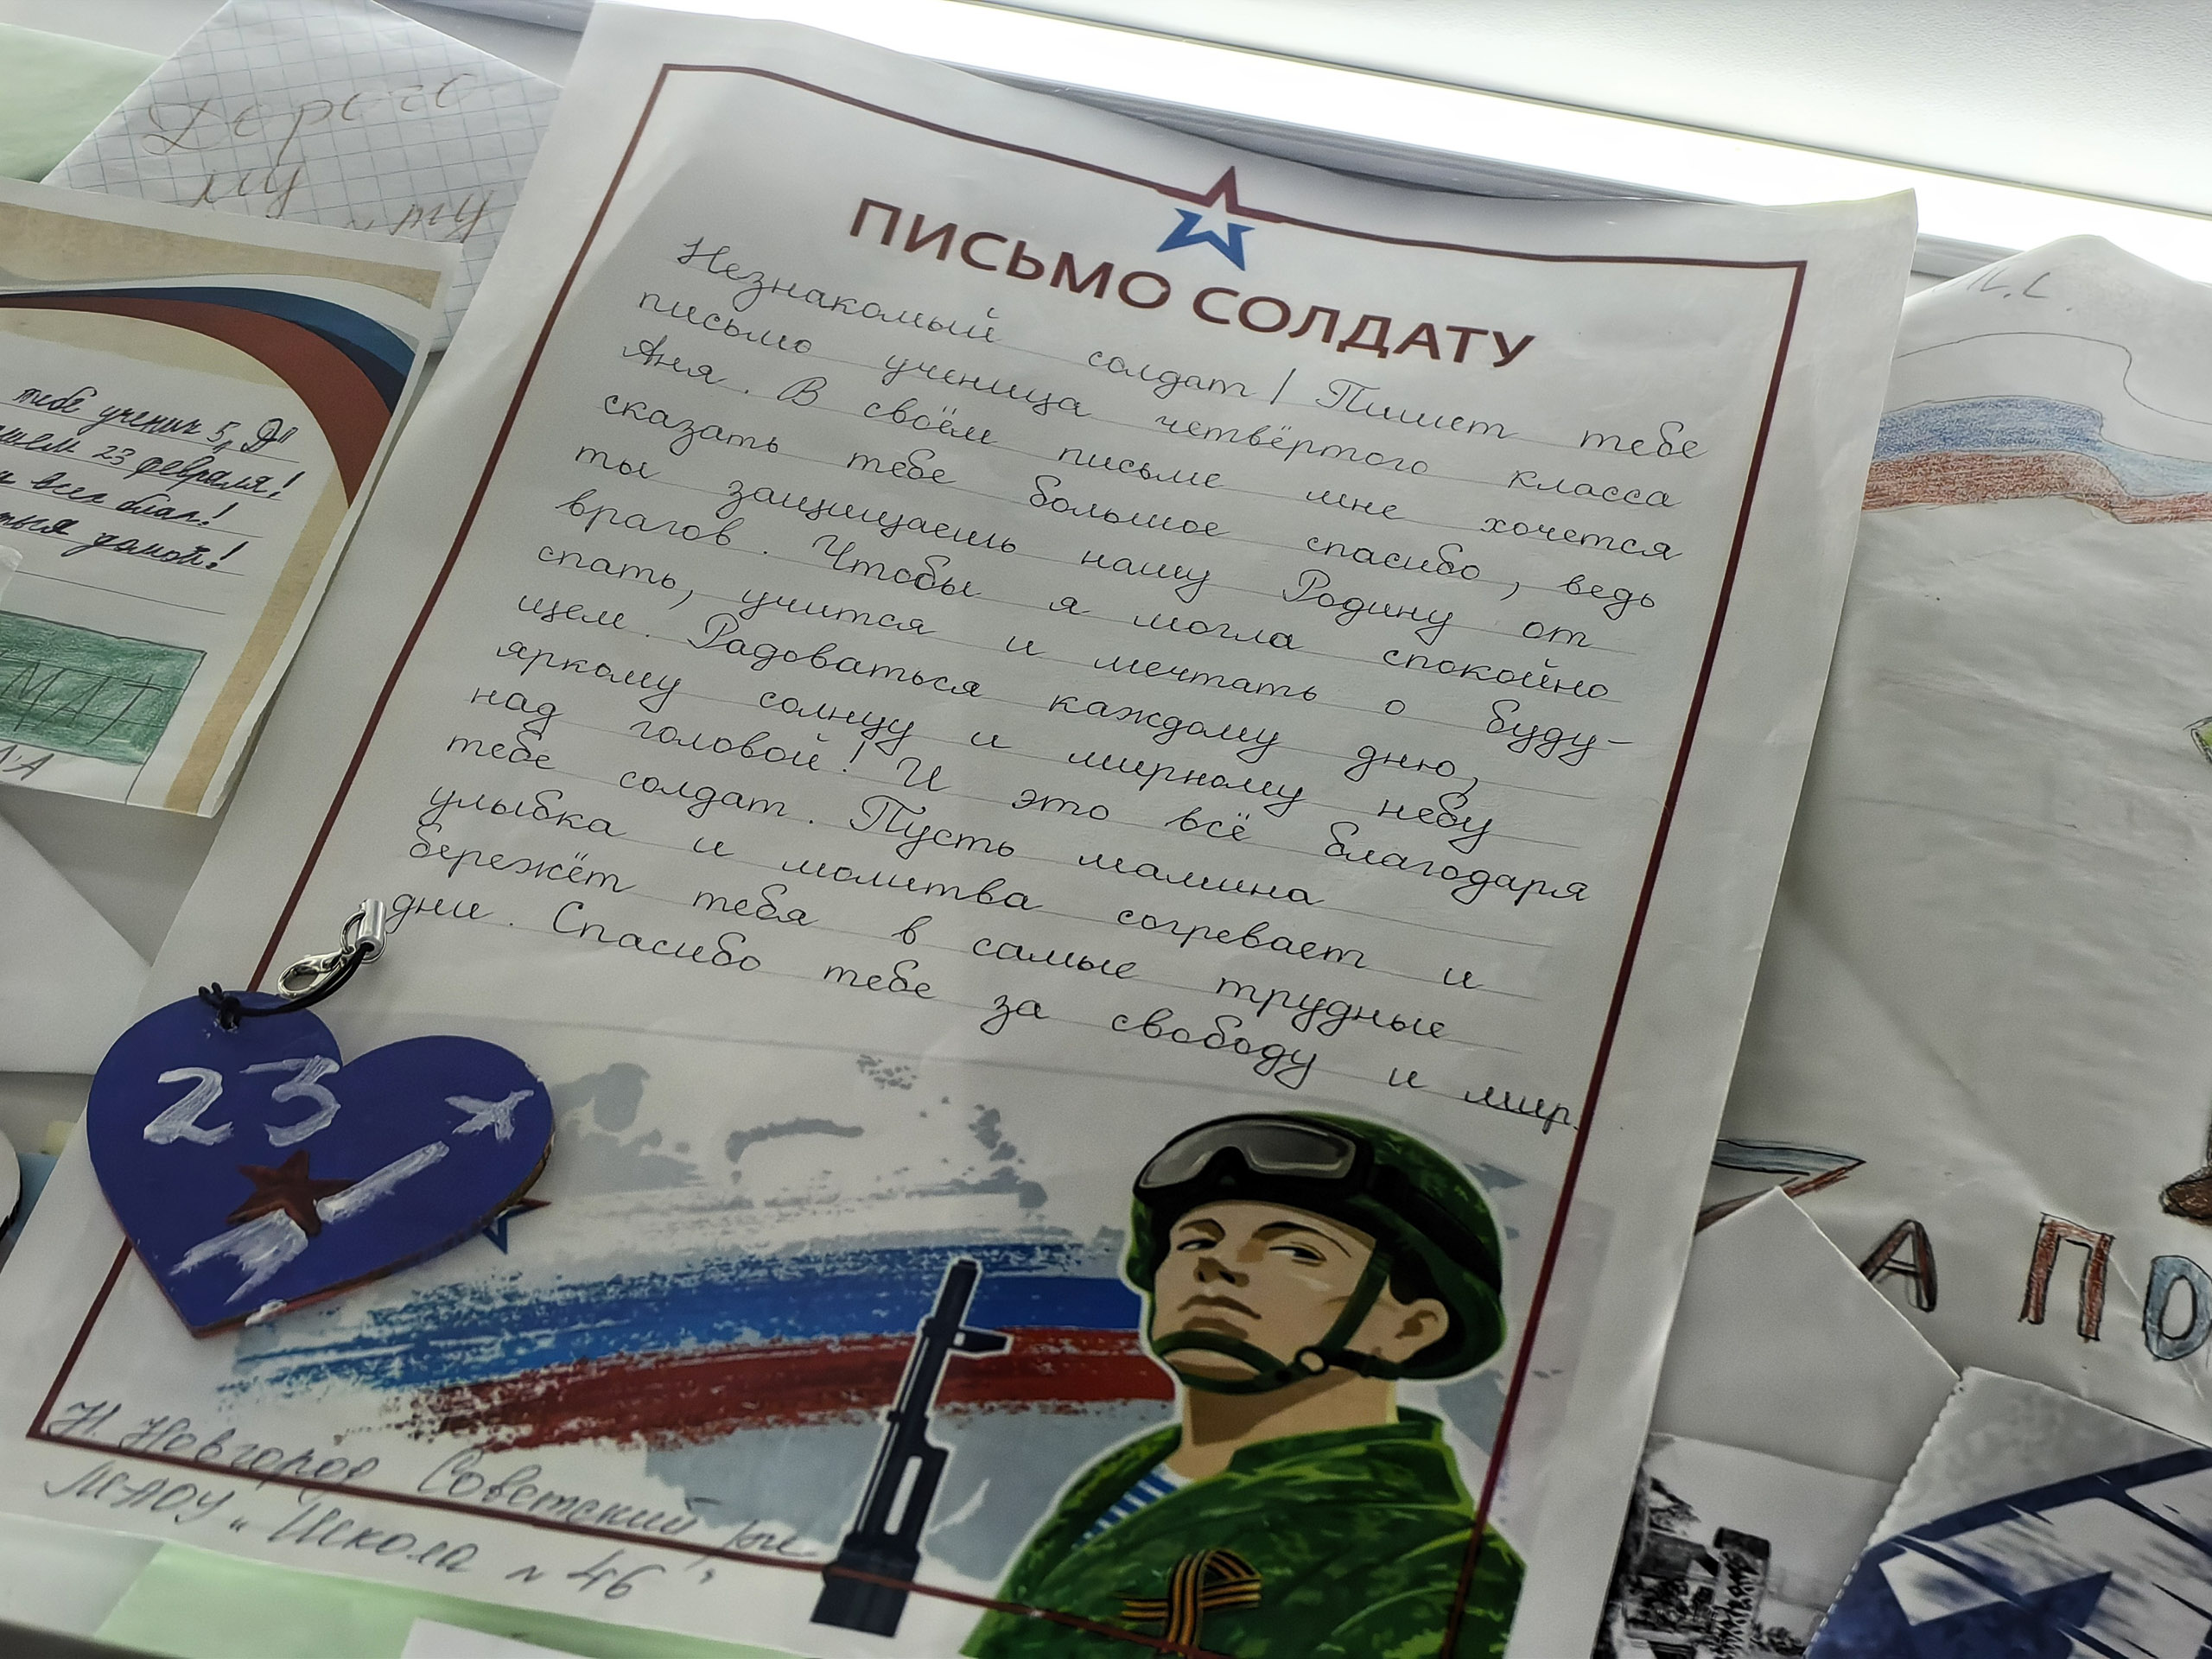 Дорого
му
ПИСЬМО СОЛДАТУ
Незнакомый солдат! Пишет тебе
письмо ученица четвёртого класса
Аня. В своём письме мне хочется
сказать тебе большое спасибо, ведь
ты защищаешь нашу Родину от
врагов. Чтобы я могла спокойно
спать, учится и мечтать о буду-
щем. Радоваться каждому дню,
яркому солнцу и мирному небу
над головой! И это всё благодаря
тебе солдат. Пусть мамина
улыбка и молитва согревает и
бережёт тебя в самые трудные
дни. Спасибо тебе за свободу и мир.
23
Н. Новгород Советский
МАОУ "Школа n 46"
тебе ученик 5 "Д"
23 февраля!
всех благ!
домой!
А ПО